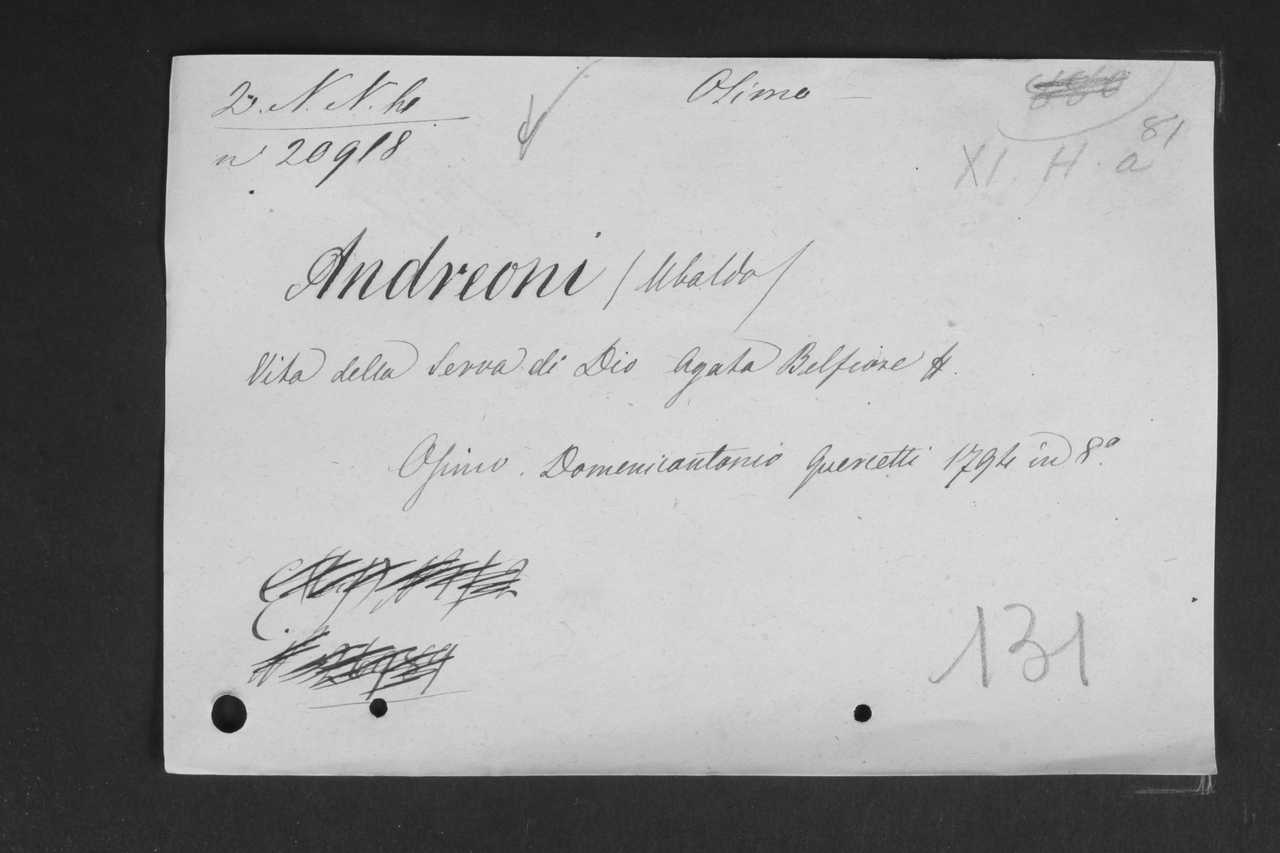 Osimo
n° 20918
XI. H. a 81
Andreoni (Ubaldo)
Vita della Serva di Dio Agata Belfiore
Osimo. Domenicantonio Quercetti 1794 in 8.°
131